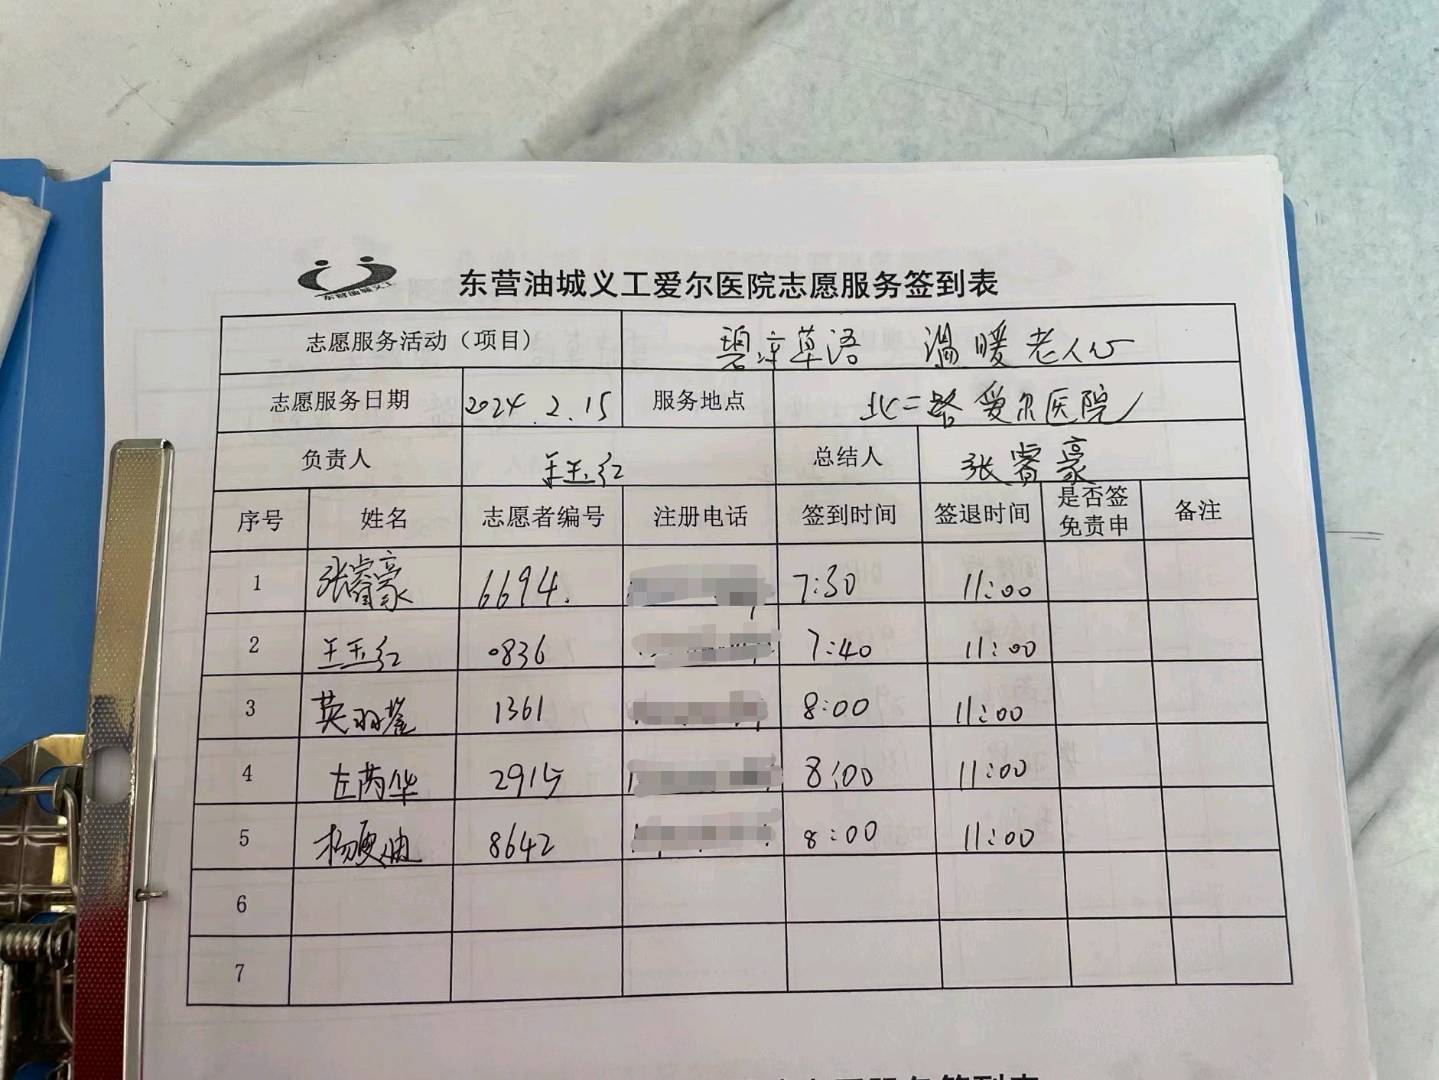 东营油城义工
东营油城义工爱尔医院志愿服务签到表
志愿服务活动（项目） 草语 温暖老人心
志愿服务日期 2024.2.15 服务地点 北二路爱尔医院
负责人 王玉红 总结人 张睿豪
序号 姓名 志愿者编号 注册电话 签到时间 签退时间 是否签免责申 备注
1 张睿豪 6694. 7:30 11:00
2 王玉红 0836 7:40 11:00
3 1361 8:00 11:00
4 左芮华 2915 8:00 11:00
5 8642 8:00 11:00
6
7